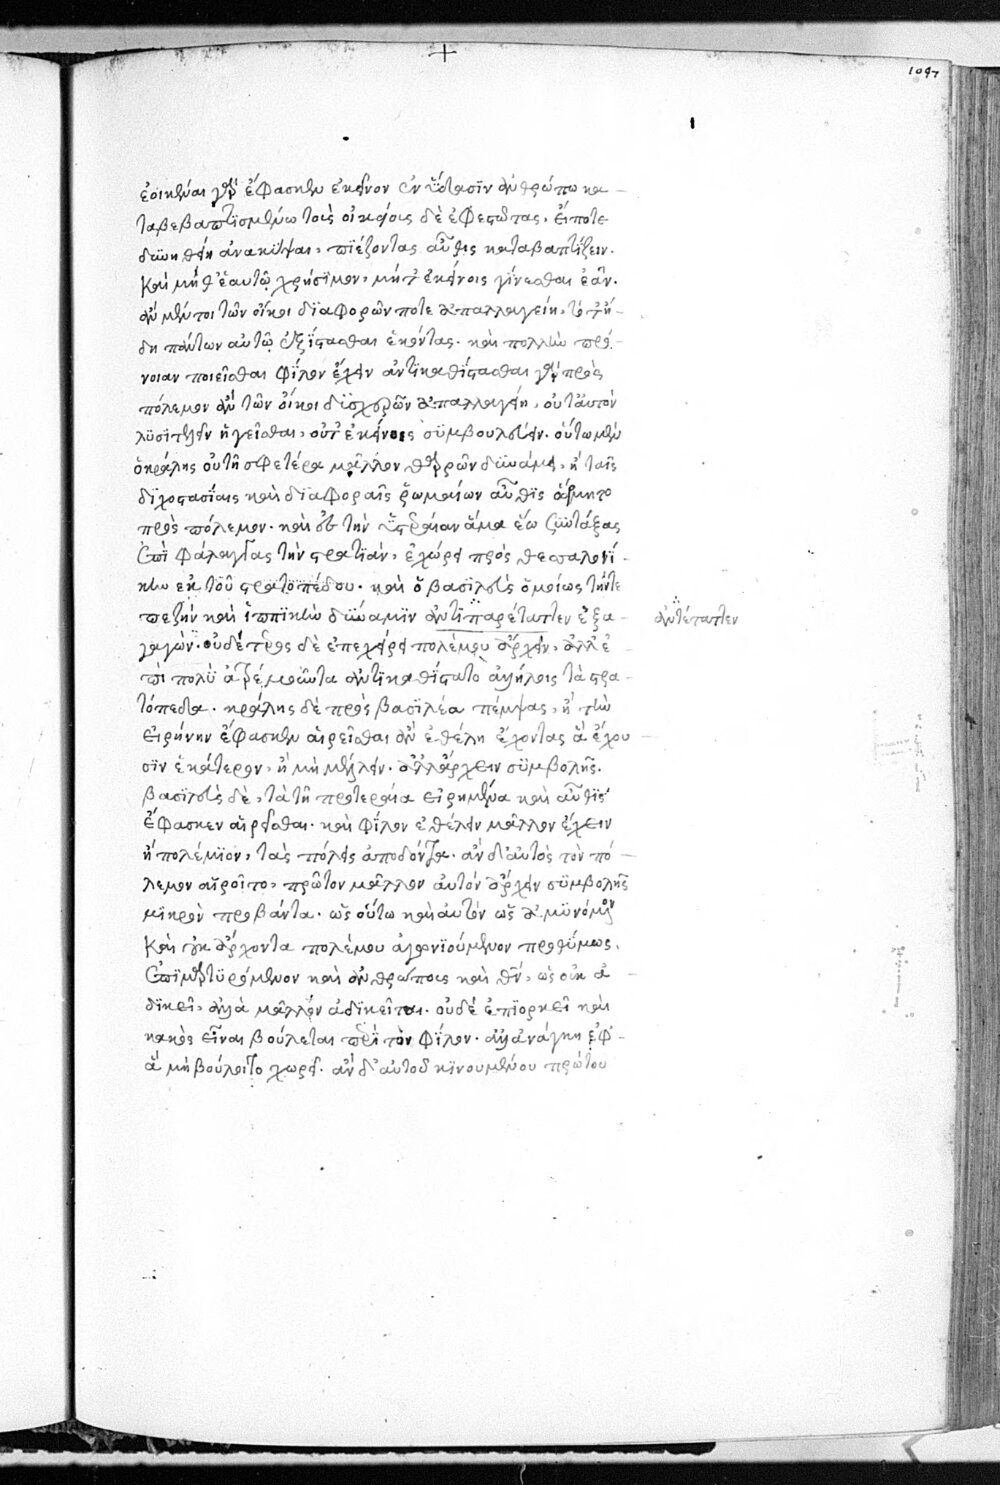 1097
ἐοικέναι γὰρ ἔφασκεν ἐκεῖνον ἐν ὕδασϊν ἀνθρώπω κα
ταβεβαπτϊσμένω τοὺς οἰκείους δὲ ἐφεστῶτας, εἴποτε
δυνηθείη ἀνακύψαι, πϊέζοντας αὖθις καταβαπτίζειν.
καὶ μήθ' ἑαυτῶ χρήσϊμον, μήτ' ἐκείνοις γίνεσθαι ἐᾶν.
ἂν μέντοι τῶν οἴκοι δϊαφορῶν ποτε ἀπαλλαγείη, τότ' ἤ
δη πάντων αὐτῶ ἐξίστασθαι ἑκόντας. καὶ πολλὴν πρό
νοιαν ποιεῖσθαι φίλον ἔχειν ἀντϊκαθίστασθαι γὰρ πρὸς
πόλεμον ἂν τῶν οἴκοι δυσχερῶν ἀπαλλαγείη, οὔτ' αὐτὸν
λϋσϊτελεῖν ἡγεῖσθαι, οὔτ' ἐκείνοις σϋμβουλεύειν. οὕτω μὲν
ὁ κράλης οὐ τῆ σφετέρα μᾶλλον θαρρῶν δυνάμει, ἢ ταῖς
δϊχοστασίαις καὶ δϊαφοραῖς ῥωμαίων αὖθϊς ἄρμητο
πρὸς πόλεμον. καὶ ἐς τὴν ὑστεραίαν ἅμα ἕω ξυντάξας
ἐπὶ φάλαγγας τὴν στρατϊὰν, ἐχώρει πρὸς θεσσαλονί
κην ἐκ τοῦ στρατοπέδου. καὶ ὁ βασϊλεὺς ὁμοίως τήν τε
πεζὴν καὶ ἱππϊκὴν δύναμϊν ἀντϊπαρέταττεν ἐξα
ἀντέταττεν
γαγών. οὐδέτερος δὲ ἐπεχείρει πολέμου ἄρχειν, ἀλλ' ἐ
πὶ πολὺ ἀτρέμοῦντα ἀντϊκαθίστατο ἀλλήλοις τὰ στρα
τόπεδα. κράλης δὲ πρὸς βασϊλέα πέμψας, ἢ τὴν
εἰρήνην ἔφασκεν αἱρεῖσθαι ἂν ἐθέλη ἔχοντας ἃ ἔχου
σϊν ἑκάτερον, ἢ μὴ μέλλειν. ἀλλ' ἄρχειν σϋμβολῆς.
βασϊλεὺς δὲ, τὰ τῆ προτεραία εἰρημένα καὶ αὖθϊς
ἔφασκεν αἱρεῖσθαι. καὶ φίλον ἐθέλειν μᾶλλον ἔχειν
ἢ πολέμϊον, τὰς πόλεις ἀποδόντα. ἂν δ' αὐτὸς τὸν πό
λεμον αἱροῖτο, πρῶτον μᾶλλον αὐτὸν ἄρχειν σϋμβολῆς
μϊκρὸν προβάντα. ὡς οὕτω καὶ αὐτὸν ὡς ἀμϋνόμενον
καὶ οὐκ ἄρχοντα πολέμου ἀγωνϊούμενον προθύμως,
ἐπϊμαρτϋρόμενον καὶ ἀνθρώπους καὶ θεὸν, ὡς οὐκ ἀ
δϊκεῖ, ἀλλὰ μᾶλλον ἀδϊκεῖται. οὐδὲ ἐπϊορκεῖ καὶ
κακὸς εἶναι βούλεται περὶ τὸν φίλον. ἀλλ' ἀνάγκη ἐφ'
ἃ μὴ βούλοιτο χωρεῖ. ἂν δ' αὐτοῦ κϊνουμένου πρώτου